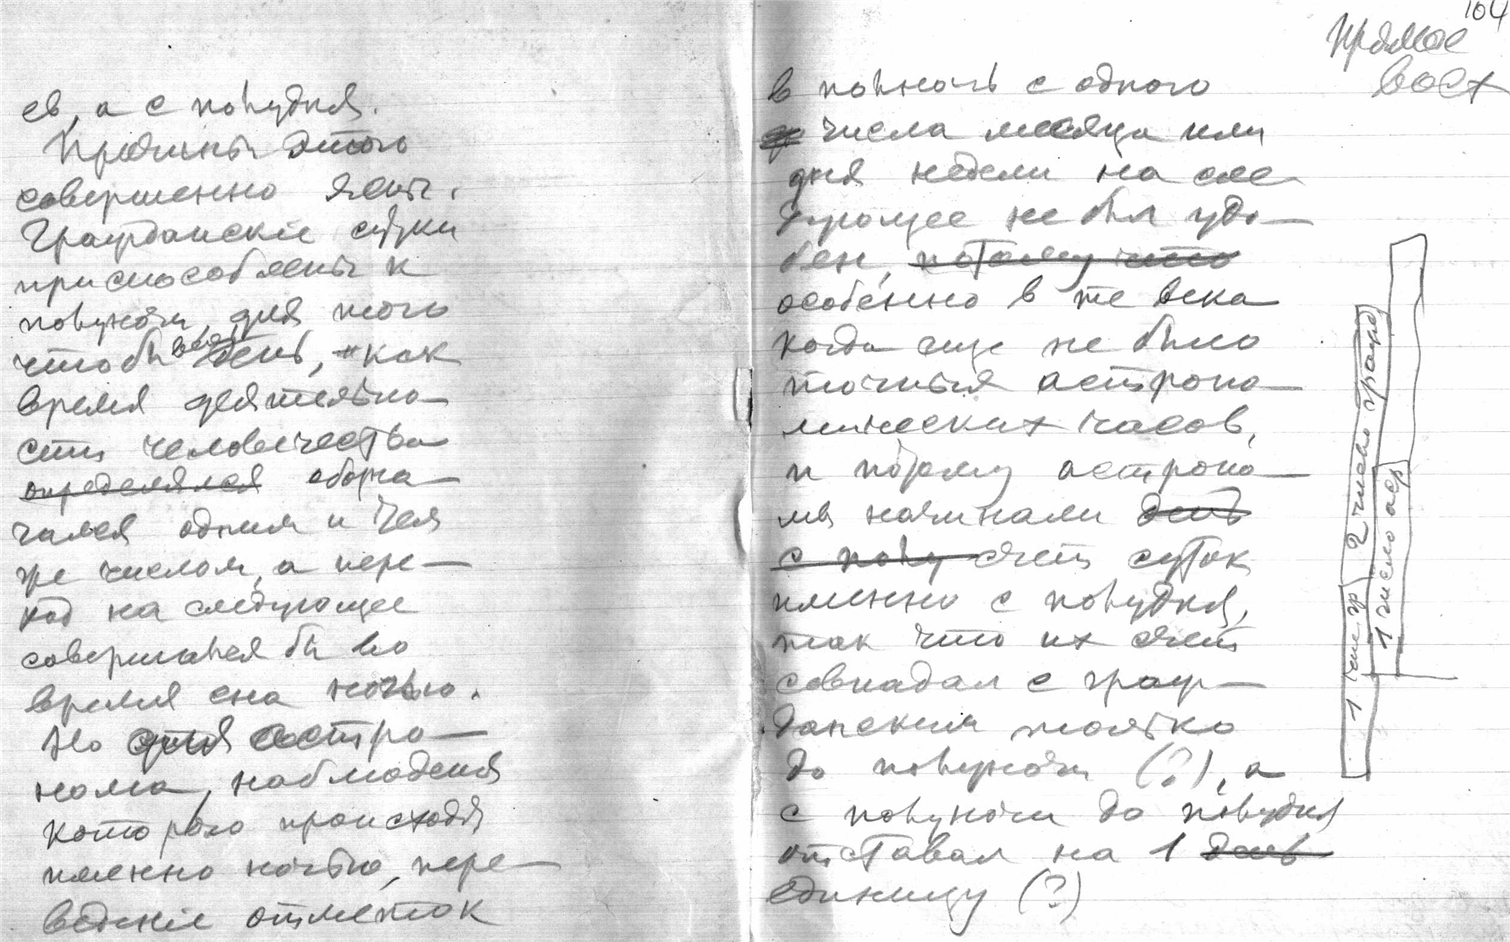 ев, а с полудня.
Причины этого
совершенно ясны.
Гражданскіе сутки
приспособлены к
полуночи, для того
чтобы весь день, как
время деятельно-
сти человечества
определялся обозна-
чался одним и тем
же числом, а пере-
ход на следующее
совершался бы во
время сна ночью.
Но для астро-
нома, наблюдения
которого происходят
именно ночью, пере-
веденіе отметок
104
прямое
восх
в полночь с одного
числа месяца или
дня недели на сле-
дующее не был удо-
бен, потому что
особенно в те века
когда еще не было
точных астроно-
мических часов,
и потому астроно-
мы начинали день
с полу счет суток
именно с полудня,
так что их счет
совпадал с граж-
данским только
до полуночи (?), а
с полуночи до полудня
отставал на 1 день
единицу (?)
1 чис гр 2 число граж
1 число аср